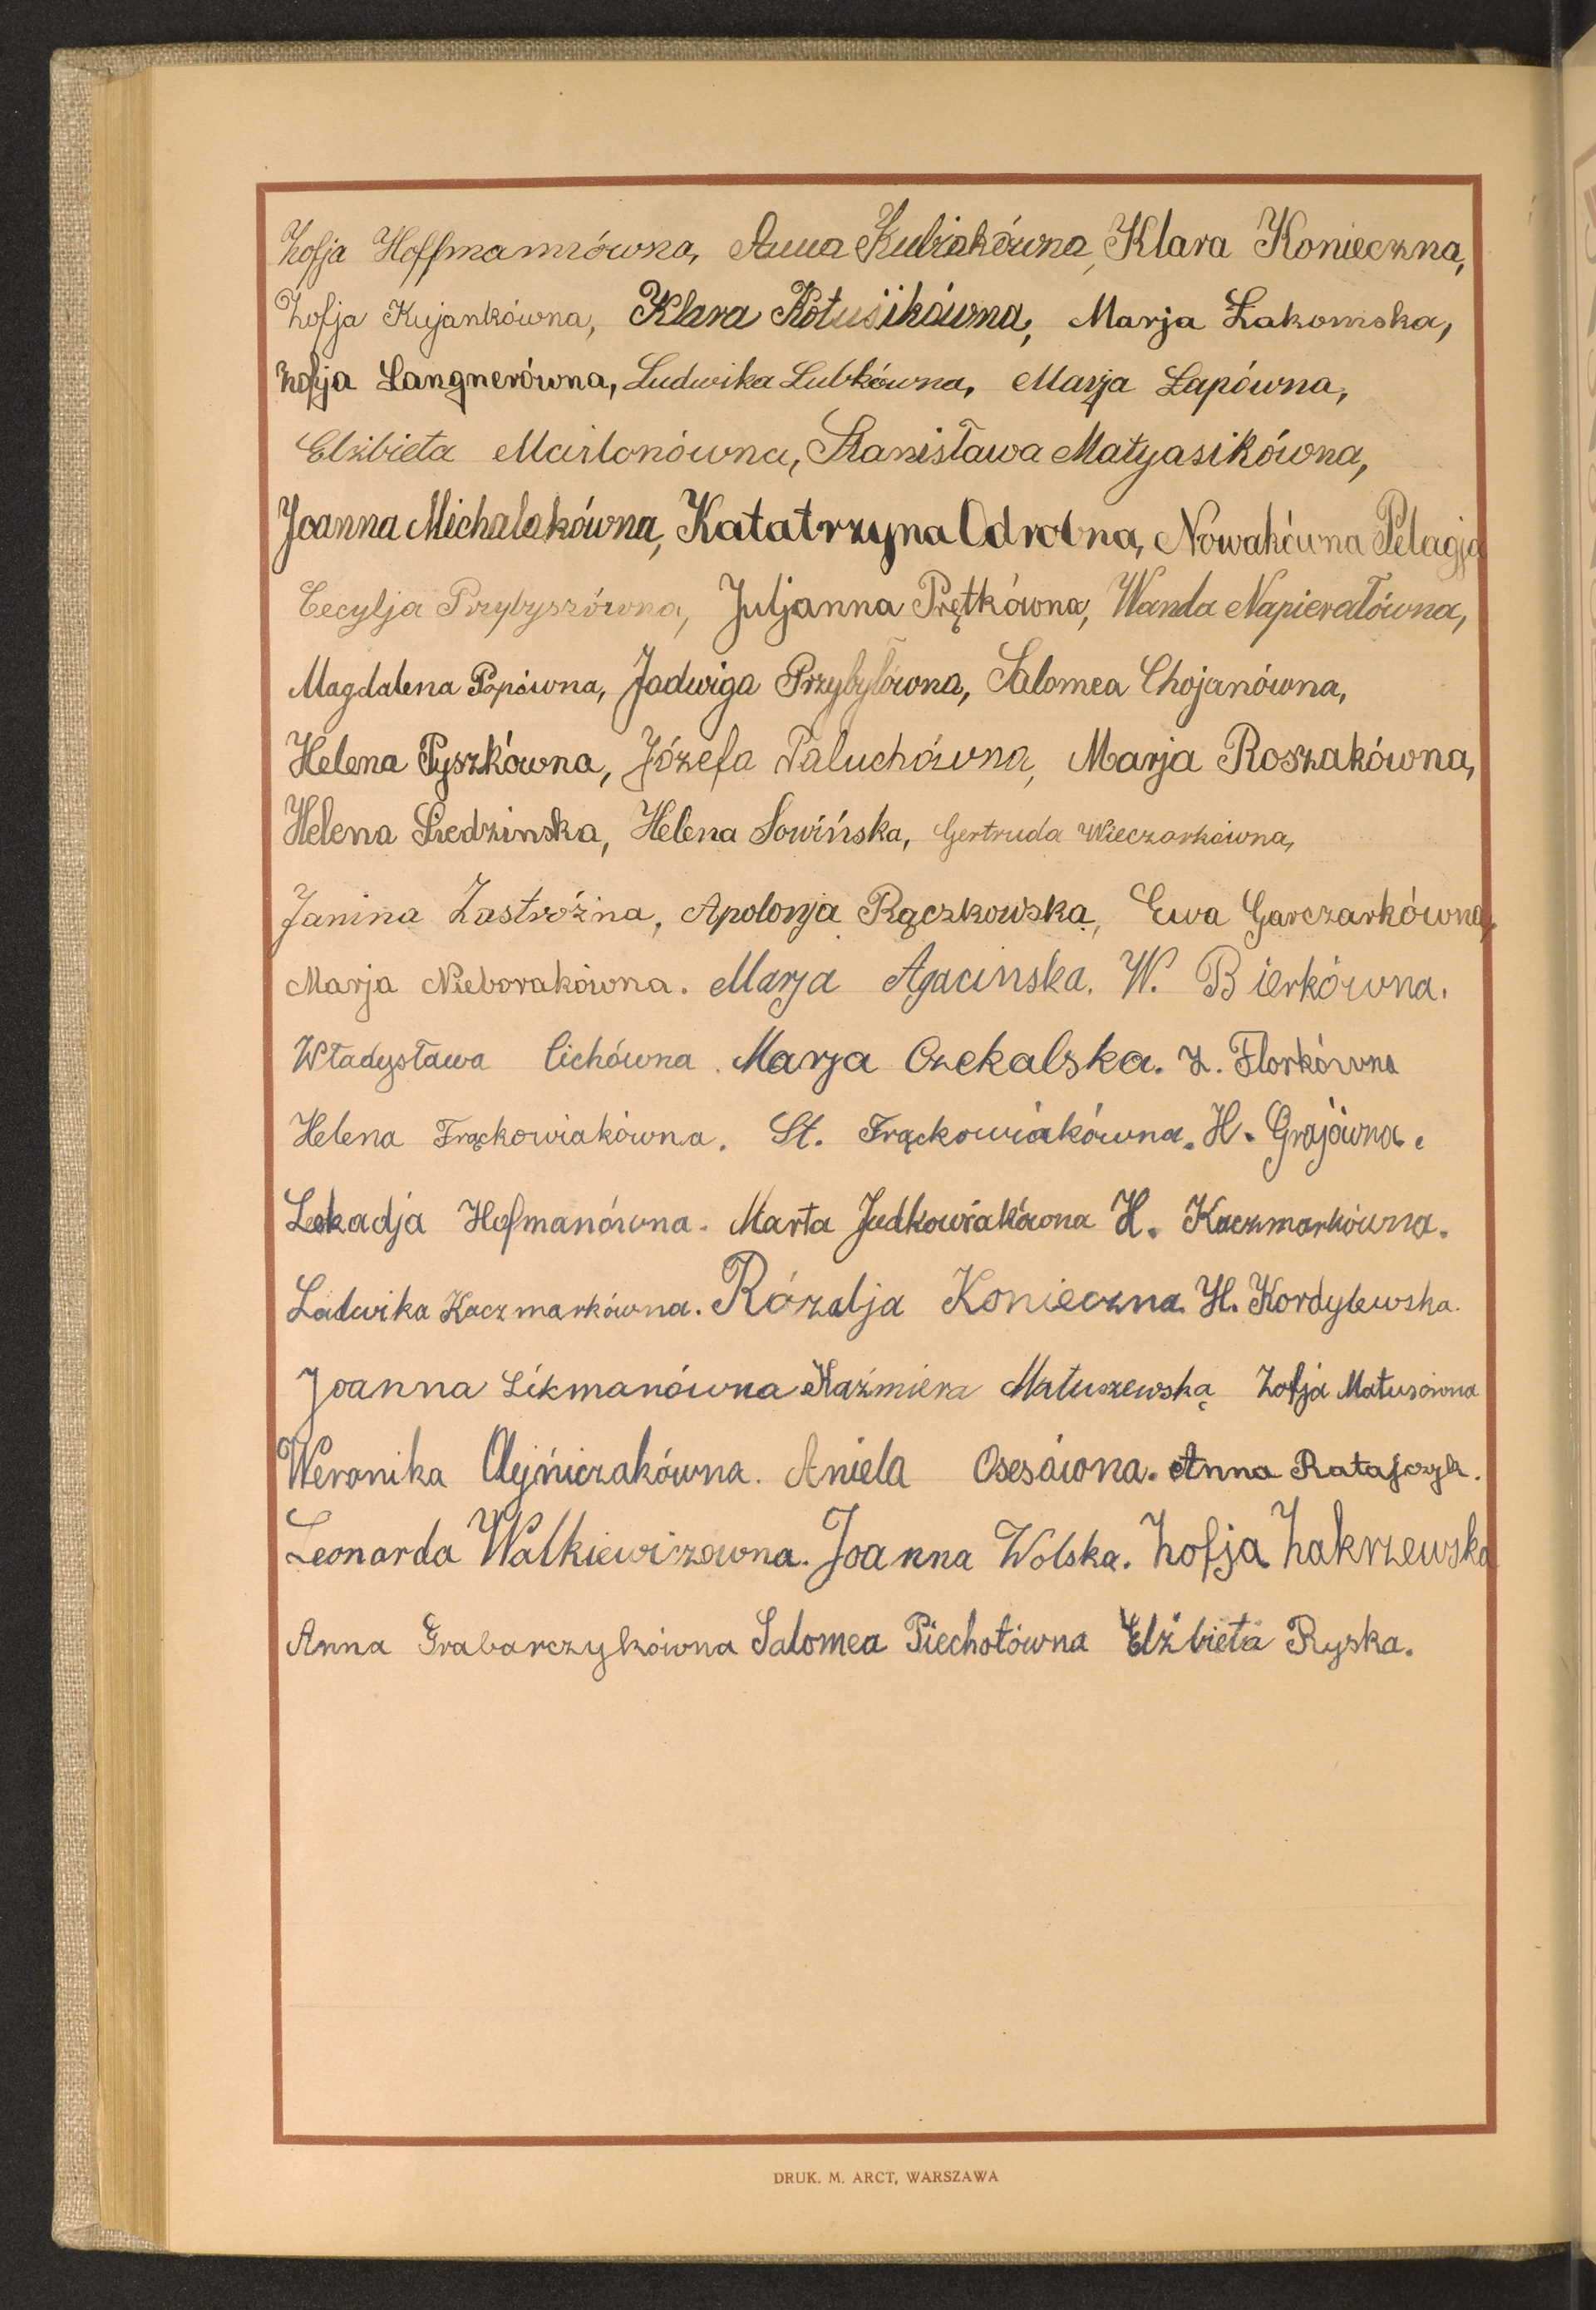 Zofja Hoffmannówna, Anna Kubiakówna, Klara Konieczna,
Zofja Kujankówna, Klara Kotusikówna, Marja Łakomska,
Zofja Langnerówna, Ludwika Lubkówna, Marja Łapówna,
Elżbieta Marlonówna, Stanisława Matyasikówna,
Joanna Michalakówna, Katatrzyna Odrobna, Nowakówna Pelagja
Cecylja Przybyszówna, Juljanna Prętkówna, Wanda Napierałówna,
Magdalena Popówna, Jadwiga Przybyłówna, Salomea Chojanówna,
Helena Pyszkówna, Józefa Paluchówna, Marja Roszakówna,
Helena Siedzinska, Helena Sowińska, Gertruda Wieczorkówna,
Janina Zastróżna, Apolonja Rączkowska, Ewa Garczarkówna,
Marja Nieborakówna. Marja Agacinska. W. Bierkówna.
Władysława Cichówna. Marja Czekalska. Z. Florkówna
Helena Frąckowiakówna. St. Frąckowiakówna. H. Grajówna.
Leokadja Hofmanówna. Marta Judkowiakówna H. Kaczmarkówna.
Ludwika Kaczmarkówna. Rózalja Konieczna. H. Kordylewska.
Joanna Likmanówna Kaźmiera Matuszewską Zofja Matusówna
Weronika Olejńiczakówna. Aniela Osesówna. Anna Ratajczyk.
Leonarda Walkiewiczówna. Joanna Wolska. Zofja Zakrzewska
Anna Grabarczykówna Salomea Piechotówna Elżbieta Ryska.
DRUK. M. ARCT, WARSZAWA